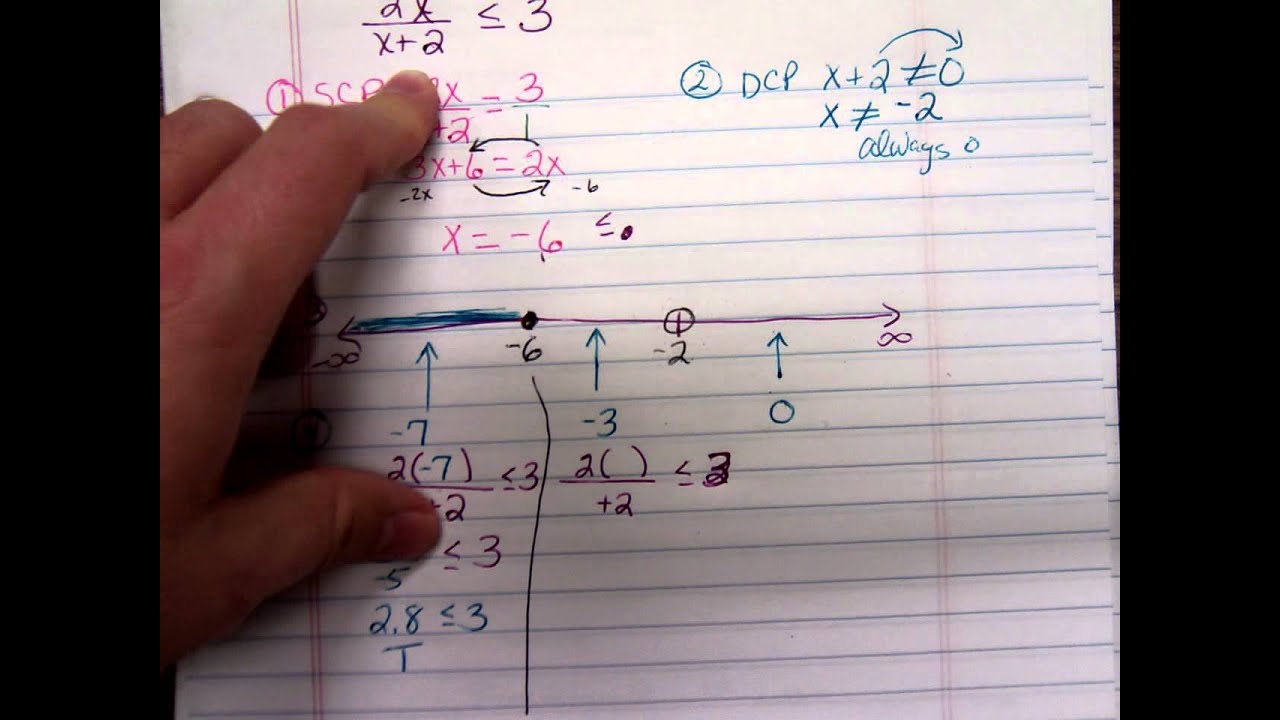 2x
x+2 ≤ 3
① SCP 2x = 3
+2 1
3x+6 = 2x
-2x -6
x = -6 ≤ •
② DCP x+2 ≠ 0
x ≠ -2
always o
-∞ -6 -2 ∞
-7 -3 0
2(-7) ≤ 3
+2
≤ 3
-5
2.8 ≤ 3
T
2( ) ≤ 3
+2